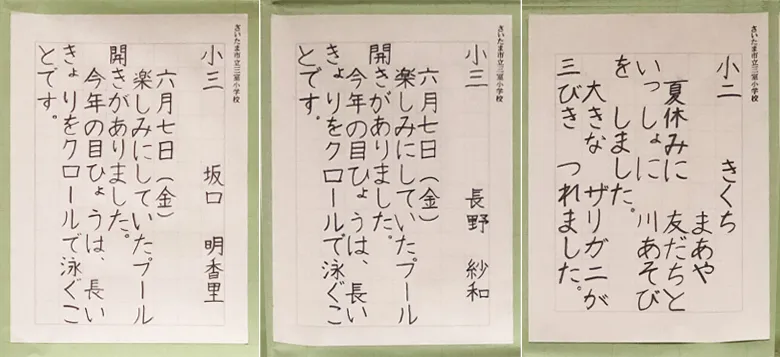 さいたま市立三室小学校
小三 坂口 明香里
六月七日(金)
楽しみにしていたプール
開きがありました。
今年の目ひょうは、長い
きょりをクロールで泳ぐこ
とです。
さいたま市立三室小学校
小三 長野 紗和
六月七日(金)
楽しみにしていたプール
開きがありました。
今年の目ひょうは、長い
きょりをクロールで泳ぐこ
とです。
さいたま市立三室小学校
小二 きくち
まあや
夏休みに 友だちと
いっしょに 川あそび
を しました。
大きな ザリガニが
三びき つれました。